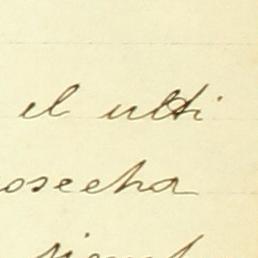 el ulti
osecha